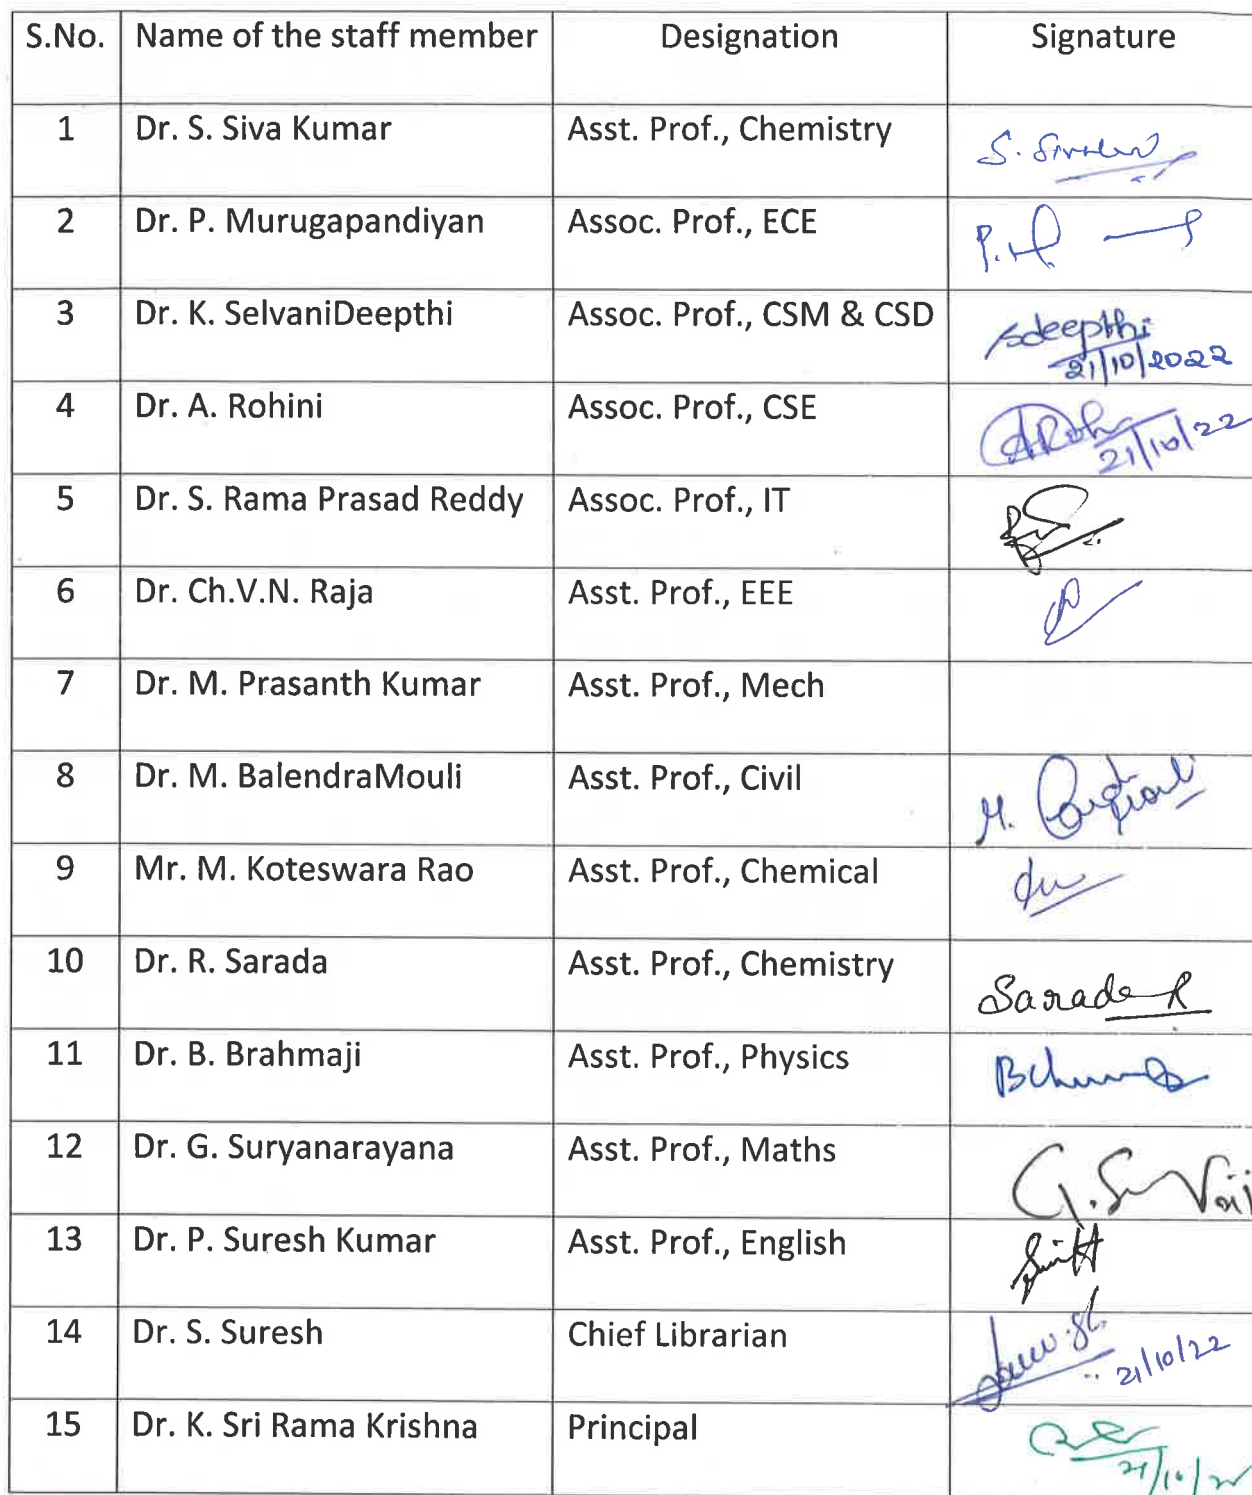 S.No. Name of the staff member Designation Signature
1 Dr. S. Siva Kumar Asst. Prof., Chemistry S.
2 Dr. P. Murugapandiyan Assoc. Prof., ECE P.
3 Dr. K. SelvaniDeepthi Assoc. Prof., CSM & CSD sdeepthi
21/10/2022
4 Dr. A. Rohini Assoc. Prof., CSE
21/10/22
5 Dr. S. Rama Prasad Reddy Assoc. Prof., IT
6 Dr. Ch.V.N. Raja Asst. Prof., EEE
7 Dr. M. Prasanth Kumar Asst. Prof., Mech
8 Dr. M. BalendraMouli Asst. Prof., Civil M.
9 Mr. M. Koteswara Rao Asst. Prof., Chemical
10 Dr. R. Sarada Asst. Prof., Chemistry Sarada R
11 Dr. B. Brahmaji Asst. Prof., Physics
12 Dr. G. Suryanarayana Asst. Prof., Maths G.
13 Dr. P. Suresh Kumar Asst. Prof., English
14 Dr. S. Suresh Chief Librarian
21/10/22
15 Dr. K. Sri Rama Krishna Principal